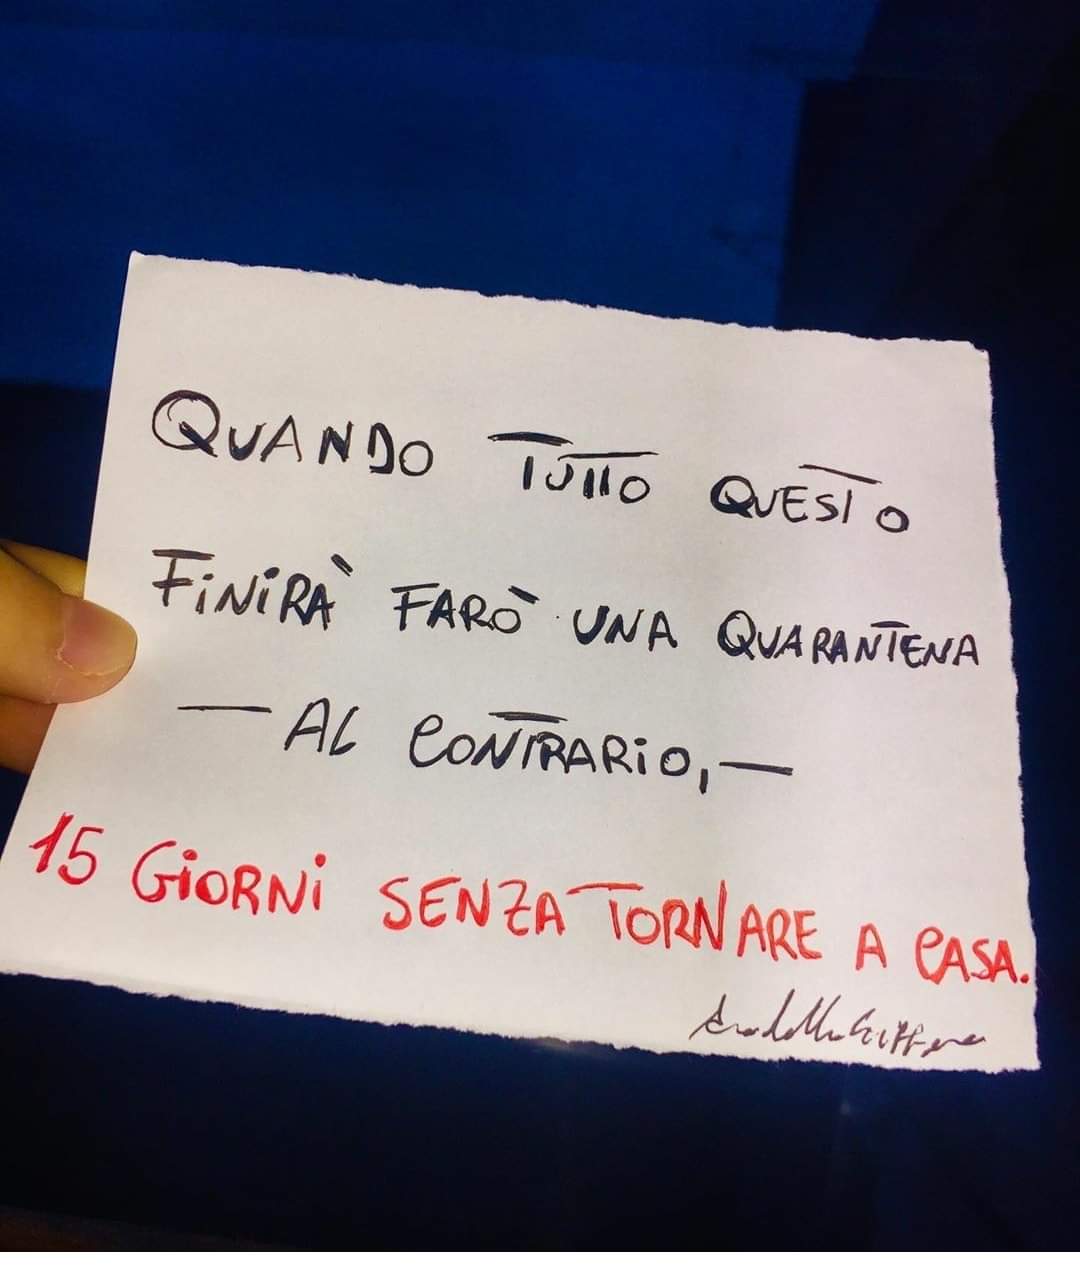 QUANDO TUTTO QUESTO
FINIRÀ FARÒ UNA QUARANTENA
— AL CONTRARIO, —
15 GIORNI SENZA TORNARE A CASA.